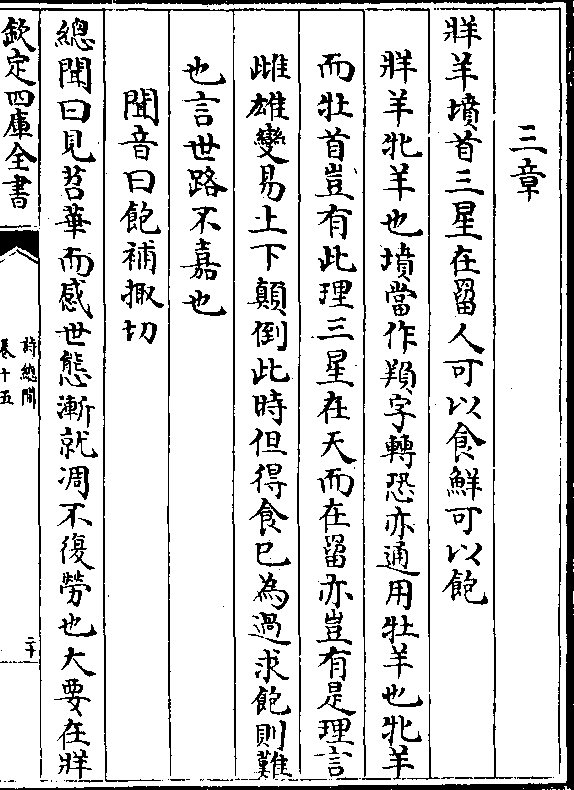 三章
牂羊墳首三星在罶人可以食鮮可以飽
牂羊牝羊也墳當作羵字轉恐亦通用牡羊也牝羊
而牡首豈有此理三星在天而在罶亦豈有是理言
雌雄變易上下顛倒此時但得食已為過求飽則難
也言世路不嘉也
聞音曰飽補掫切
總聞曰見苕華而感世態漸就凋不復勞也大要在牂
欽定四庫全書
詩總聞
卷十五
二十